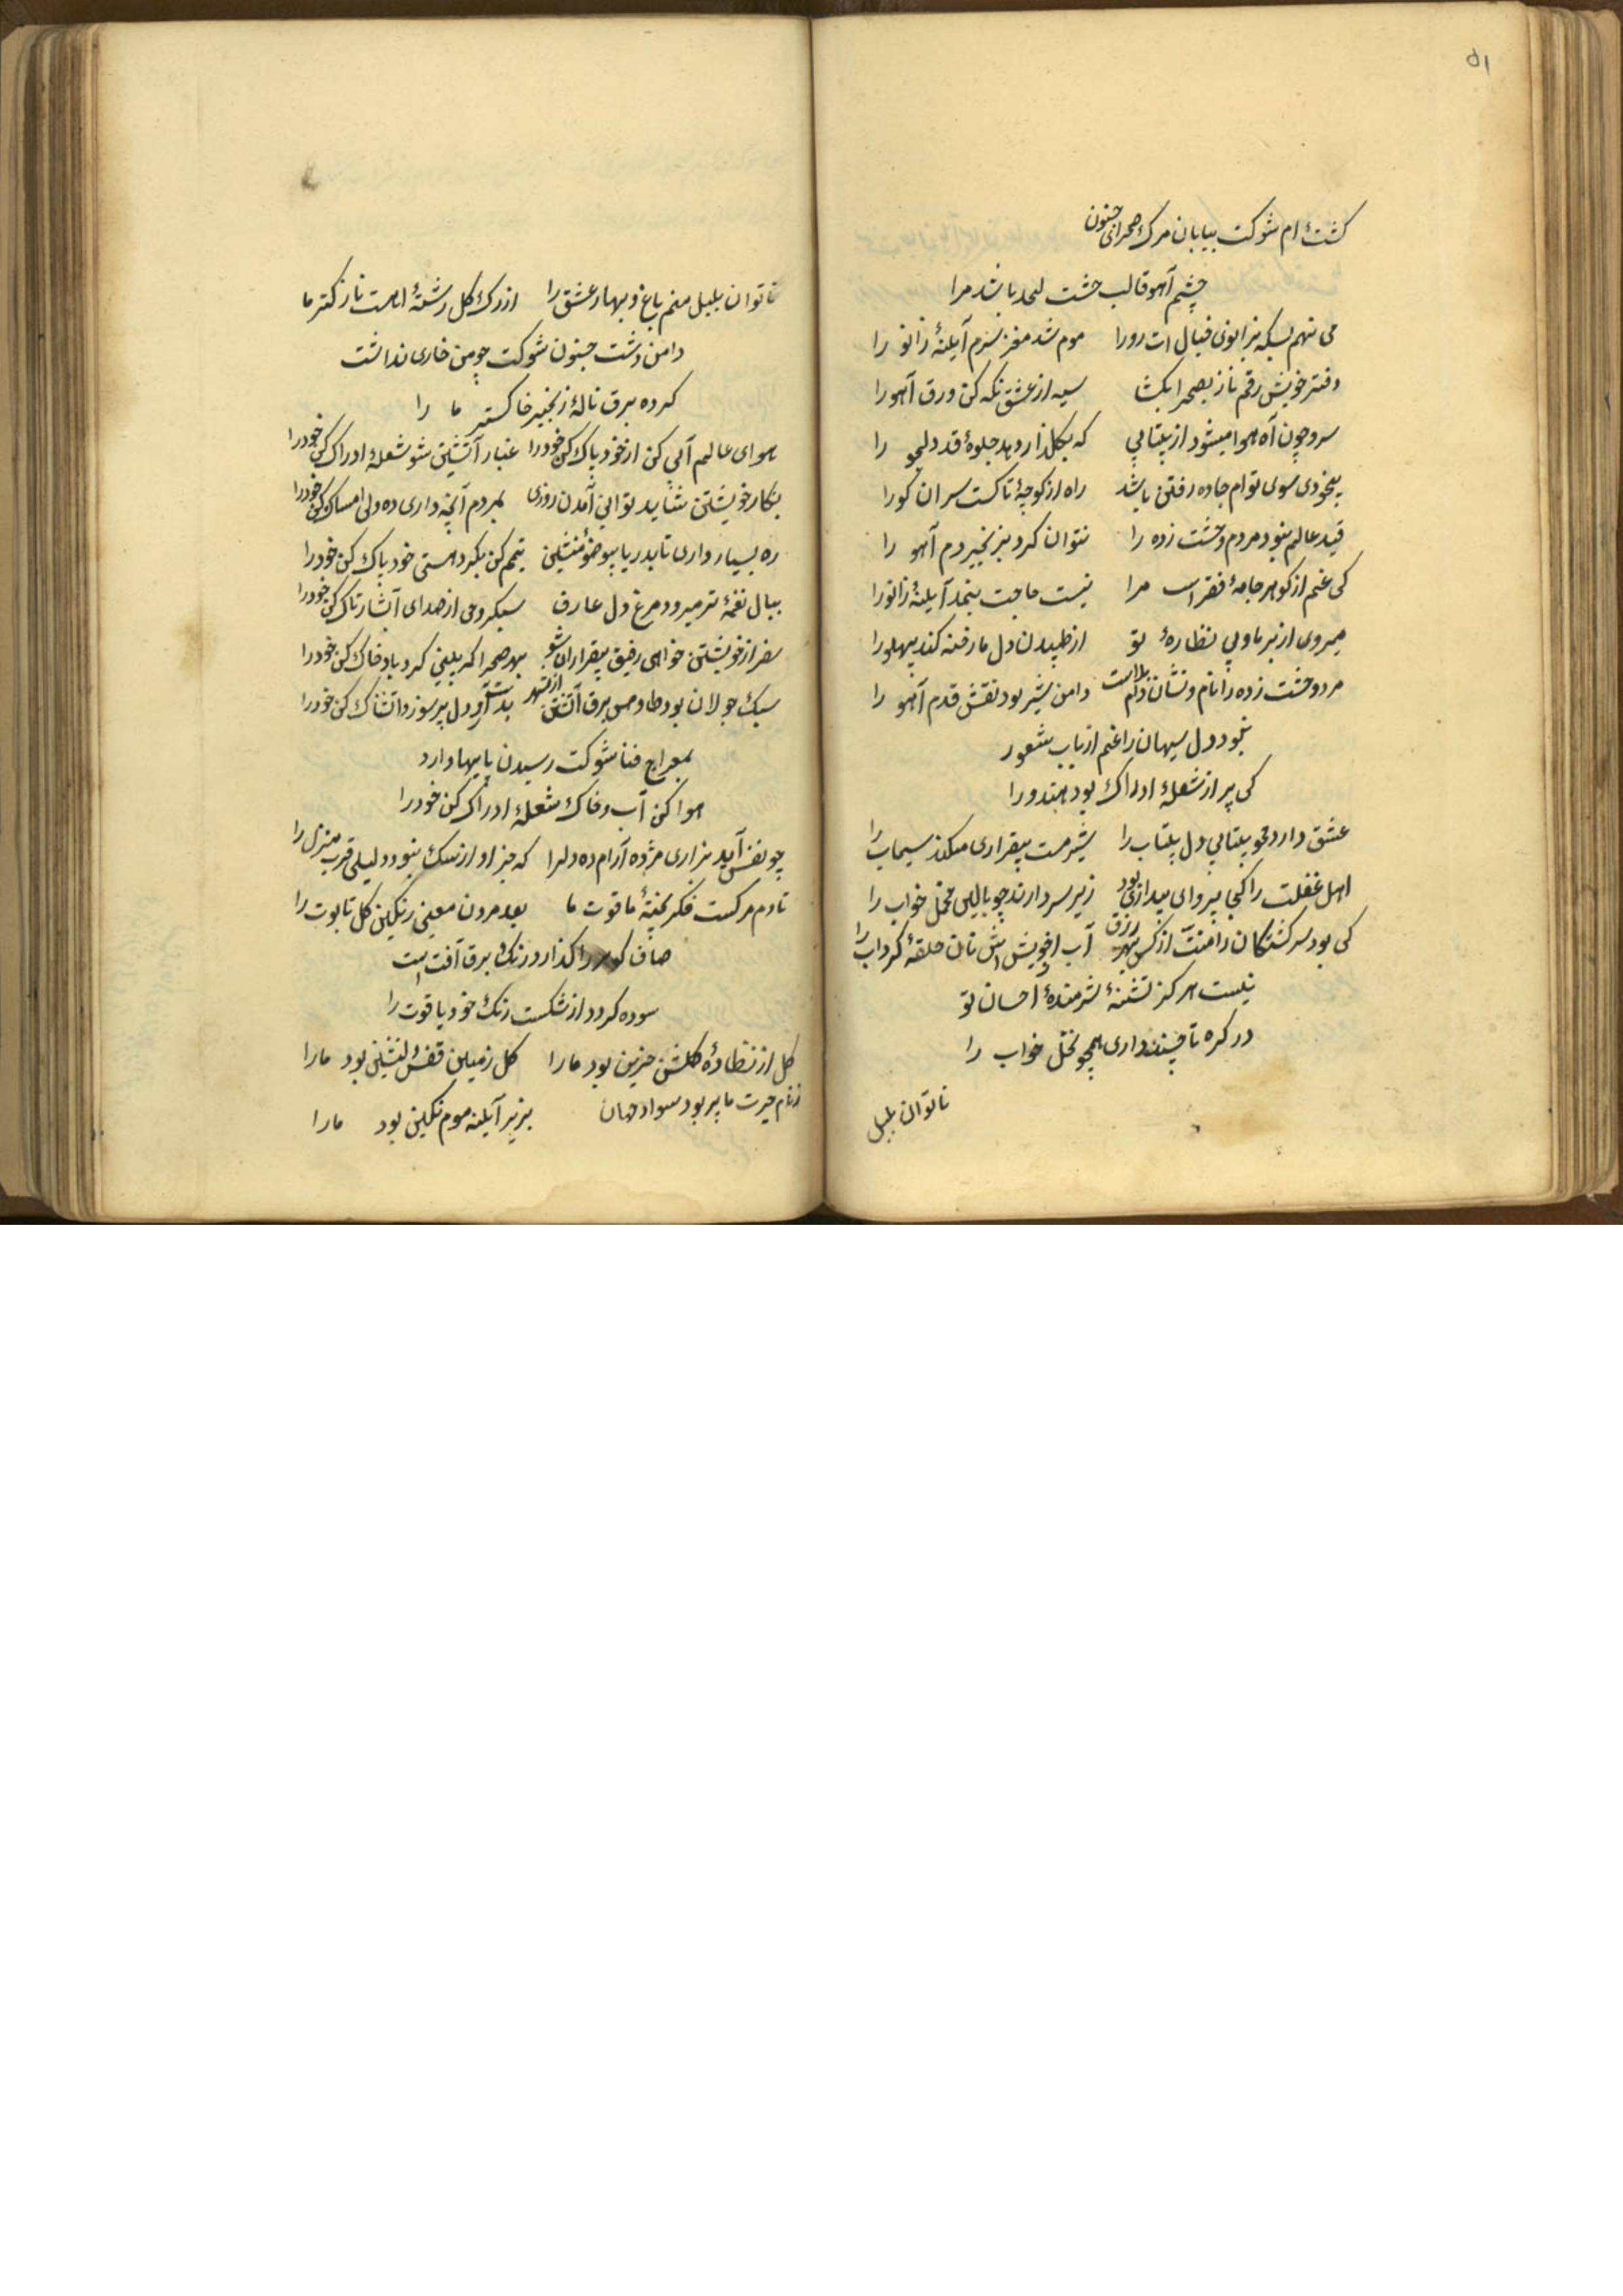 ۵۱
کشتهٔ ام شوکت بیابان مرک صحرای جنون
چشم آهو قالب خشت لحد باشد مرا
می نهم بسکه بزانوی خیال ات رورا موم شد مغز سرم آیلنهٔ زانو را
دفتر خویش رقم ناز بصحرا بکشا سیه از عشق نکه کن ورق آهورا
سرو چون آه هوا میشود از بیتابی که بکلذار دهد جلوهٔ قد دلجو را
بیخودی سوی توام جاده رفتن باشد راه از کوچهٔ تاکست سران کورا
قید عالم نبود مردم وحشت زده را نتوان کرد بزنجیر دم آهو را
کی غنم از کوهر جامهٔ فقر است مرا نیست حاجت بنمد آیلنهٔ زانورا
میروی از بر ما وپی نظارهٔ تو از طپیدن دل ما رخنه کند پهلورا
مرد وحشت زده را نام و نشان دام بلااست دامن شیر بود نقش قدم آهو را
نبود دل سیهان را غنم ارباب شعور
کی پر از شعلهٔ ادراک بود هندو را
عشق دارد محو بیتابی دل بیتاب را شیر مست بیقراری میکند سیماب را
اهل غفلت را کجا پروای بیداری بود زیر سر دارند چو بالین مخمل خواب را
کی بود سرکشتکان را منت از کس بهر رزق آب از خویش است نان حلقهٔ کرداب را
نیست هرکز تشنهٔ شرمندهٔ احسان تو
در کره تا چند داری همچو مخمل خواب را
ناتوان بلبل
ناتوان بلبل منم باغ و بهار عشق را از رک کل رشتهٔ است نازکتر ما
دامن دشت جنون شوکت چو من خاری نداشت
کرده برق نالهٔ زنجیر خاکستر ما را
هوای عالم آبی کن از خود پاک کن خودرا غبار آتشین شو شعلهٔ ادراک کن خودرا
بکار خویشتن شاید توانی آمدن روزی بمردم آنچه داری ده ولی امساک کن خودرا
ره بسیار داری تا بدریا بیوضو منشین تیمم کن بکرد هستی خود پاک کن خودرا
ببال نغمهٔ تر میرود مرغ دل عارف سبکروحی از صدای آبشار تاک کن خودرا
سفر از خویشتن خواهی رفیق بیقراران شو بهر صحرا که بینی کرد باد خاک کن خودرا
سبک جولان بود طاوس برق آتشین از شهر بدست آور دل پرسوز و آتشناک کن خودرا
بمعراج فنا شوکت رسیدن پایها دارد
هوا کن آب و خاک شعلهٔ ادراک کن خودرا
چو نفس آید بزاری مژده آرام ده دلرا که جز آواز سک نبود دلیلی قرب منزل را
تا دم مرکست فکر پختهٔ ما قوت ما بعد مردن معنی رنکین کل تابوت را
صاف کوهر را کذارد رنک برق آفت است
سوده کردد از شکست رنک خود یاقوت را
کل از نظارهٔ کلشن حزین بود مارا کل زمین قفس دلنشین بود مارا
ز نام حیرت ما پر بود سواد جهان بزیر آیلنه موم نکین بود مارا